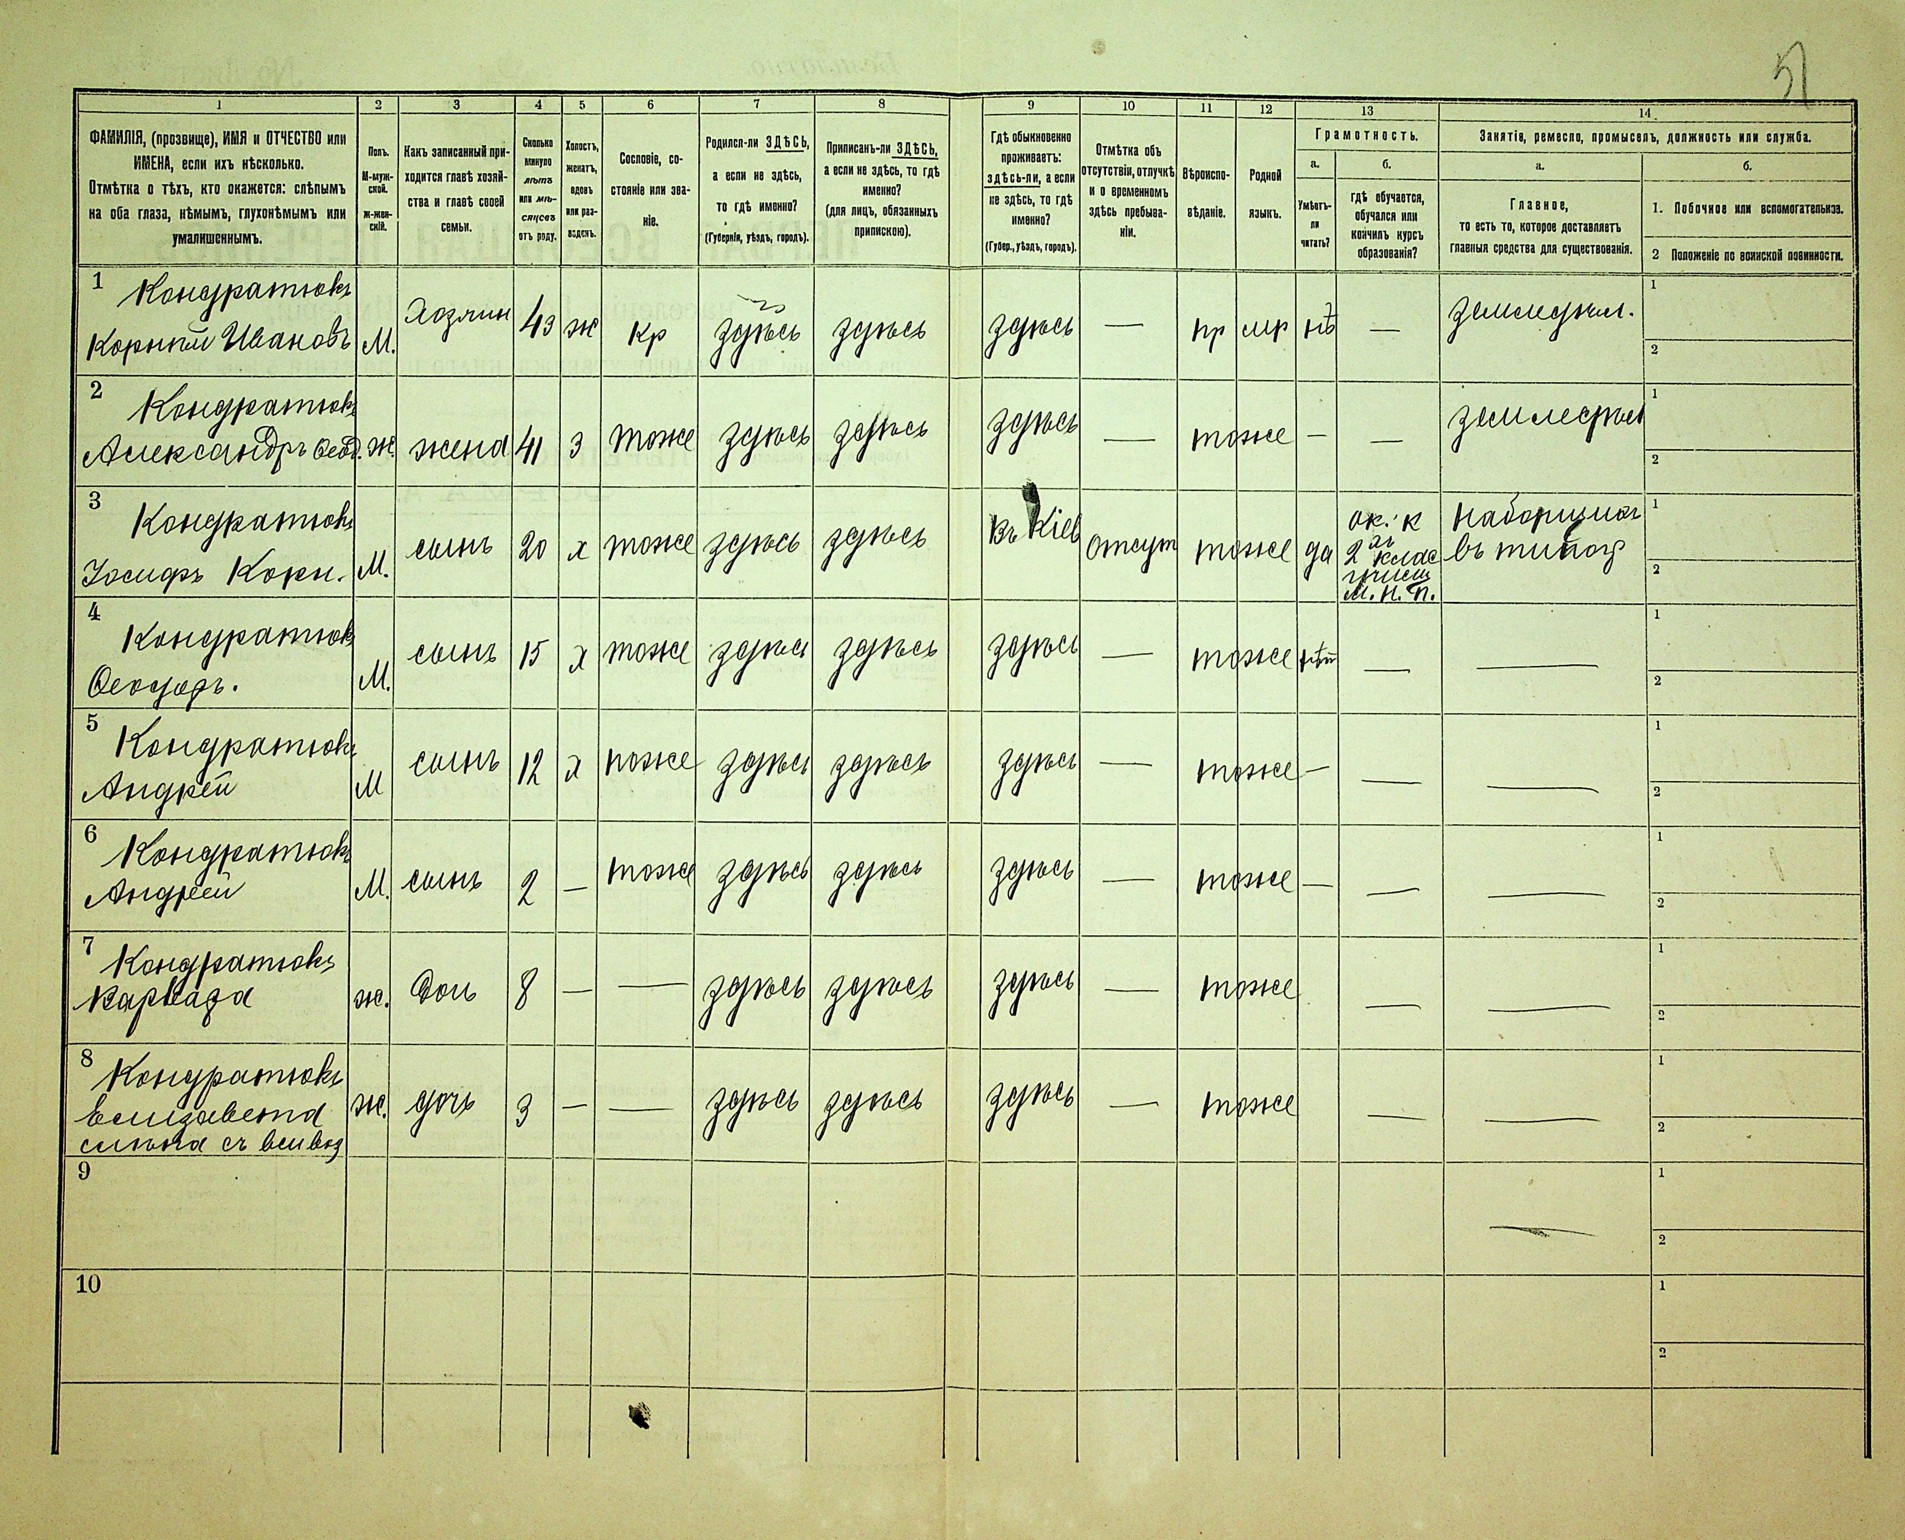 51
1 2 3 4 5 6 7 8 9 10 11 12 13 14
ФАМИЛІЯ, (прозвище), ИМЯ и ОТЧЕСТВО или
ИМЕНА, если ихъ нѣсколько.
Отмѣтка о тѣхъ, кто окажется: слѣпымъ
на оба глаза, нѣмымъ, глухонѣмымъ или
умалишеннымъ.
Полъ.
М-муж-
ской.
ж-жен-
скій.
Какъ записанный при-
ходится главѣ хозяй-
ства и главѣ своей
семьи.
Сколько
минуло
лѣтъ
или мѣ-
сяцевъ
отъ роду.
Холостъ,
женатъ,
вдовъ
или раз-
веденъ.
Сословіе, со-
стояніе или зва-
ніе.
Родился-ли ЗДѢСЬ,
а если не здѣсь,
то гдѣ именно?
(Губернія, уѣздъ, городъ).
Приписанъ-ли ЗДѢСЬ,
а если не здѣсь, то гдѣ
именно?
(для лицъ, обязанныхъ
припискою).
Гдѣ обыкновенно
проживаетъ:
здѣсь-ли, а если
не здѣсь, то гдѣ
именно?
(Губер., уѣздъ, городъ).
Отмѣтка объ
отсутствіи, отлучкѣ
и о временномъ
здѣсь пребыва-
ніи.
Вѣроиспо-
вѣданіе.
Родной
языкъ.
Грамотность.
а.
Умѣетъ-
ли
читать?
б.
гдѣ обучается,
обучался или
кончилъ курсъ
образованія?
Занятіе, ремесло, промыселъ, должность или служба.
а.
Главное,
то есть то, которое доставляетъ
главныя средства для существованія.
б.
1. Побочное или вспомогательное.
2 Положеніе по воинской повинности.
1
Кондратюкъ
Корнилий Ивановъ М. Хозяин 43 ж Кр здѣсь здѣсь здѣсь — пр мр нѣ — земледѣл. 1
2
2
Кондратюкъ
Александръ Ѳеод. ж. жена 41 з тоже здѣсь здѣсь здѣсь — тоже — — земледѣл 1
2
3
Кондратюкъ
Іосифъ Корн. М. сынъ 20 х тоже здѣсь здѣсь Въ Кіев отсут тоже да
ок. к
2 хъ клас
училищ
М. Н. П.
наборщиком
въ типогр
1
2
4
Кондратюкъ
Ѳеодоръ. М. сынъ 15 х тоже здѣсь здѣсь здѣсь — тоже нѣт — — 1
2
5
Кондратюкъ
Андрей М сынъ 12 х тоже здѣсь здѣсь здѣсь — тоже — — — 1
2
6
Кондратюкъ
Андрей М. сынъ 2 — тоже здѣсь здѣсь здѣсь — тоже — — — 1
2
7
Кондратюкъ
Варвара ж. доч 8 — — здѣсь здѣсь здѣсь — тоже — — 1
2
8
Кондратюкъ
Елизавета ж. дочь 3 — — здѣсь здѣсь здѣсь — тоже — — 1
2
9
— 1
2
10
1
2